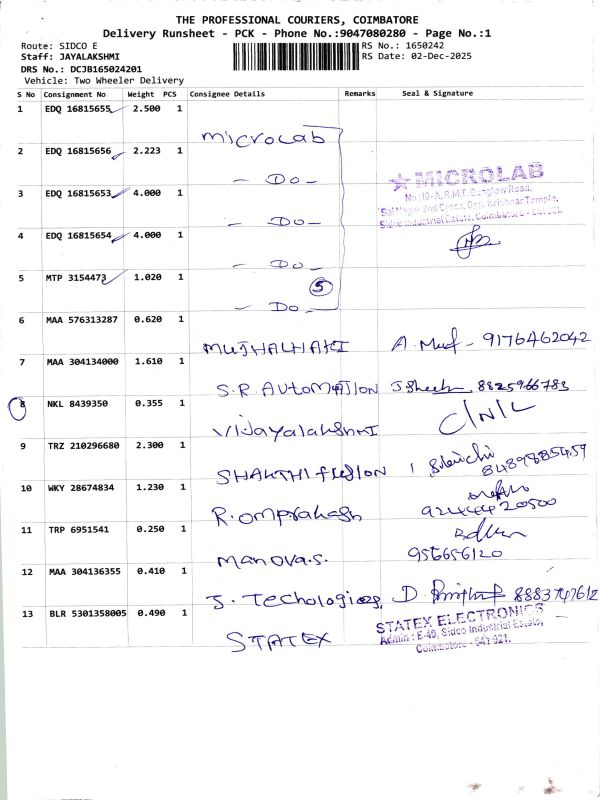 THE PROFESSIONAL COURIERS, COIMBATORE
Delivery Runsheet - PCK - Phone No.:9047080280 - Page No.:1
Route: SIDCO E
RS No.: 1650242
Staff: JAYALAKSHMI
RS Date: 02-Dec-2025
DRS No.: DCJB165024201
Vehicle: Two Wheeler Delivery
S No Consignment No Weight PCS Consignee Details Remarks Seal & Signature
1 EDQ 16815655 2.500 1
microlab
2 EDQ 16815656 2.223 1
- Do -
MICROLAB
3 EDQ 16815653 4.000 1
No: 10-A, R.M.T. Bunglow Road,
Sai Nagar 2nd Cross, Opp. Krishnar Temple,
- Do -
Sidco Industrial Estate, Coimbatore -
4 EDQ 16815654 4.000 1
- Do -
5 MTP 3154473 1.020 1
5
- Do -
6 MAA 576313287 0.620 1
MUTHALHAKI A. - 9176462042
7 MAA 304134000 1.610 1
S.R. AUTOMATION 8825966783
8 NKL 8439350 0.355 1
C/N/L
Vijayalakshmi
9 TRZ 210296680 2.300 1
SHAKTHI fusion
8489885459
10 WKY 28674834 1.230 1
R. omprakash 9244420500
11 TRP 6951541 0.250 1
manova.s. 956656120
12 MAA 304136355 0.410 1
J. Techologies, D. 8883747612
13 BLR 5301358005 0.490 1
STATEX ELECTRONICS
Admin : E-49, Sidco Industrial Estate,
Coimbatore - 641 021.
STATEX